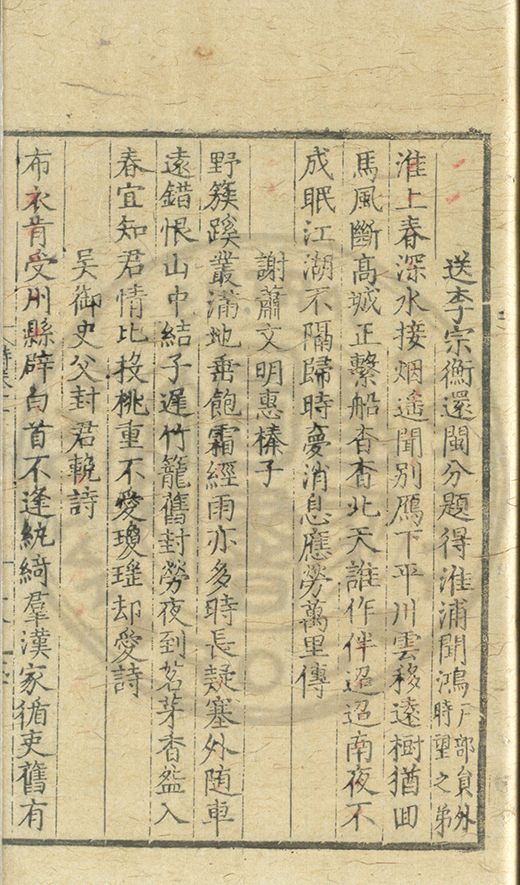 送李宗衡還閩分題得淮浦聞鴻戶部員外時望之弟
淮上春深水接烟遥聞別鴈下平川雲移遠樹猶回
馬風斷高城正繫船杳杳北天誰作伴迢迢南夜不
成眠江湖不隔歸時夢消息應勞萬里傳
謝蕭文明惠榛子
野簇蹊叢滿地垂飽霜經雨亦多時長疑塞外随車
遠錯恨山中結子遲竹籠舊封勞夜到茗芽香㿻入
春宜知君情比投桃重不愛瓊瑤却愛詩
吴御史父封君輓詩
布衣肯受州縣辟白首不逢紈綺羣漢家循吏舊有